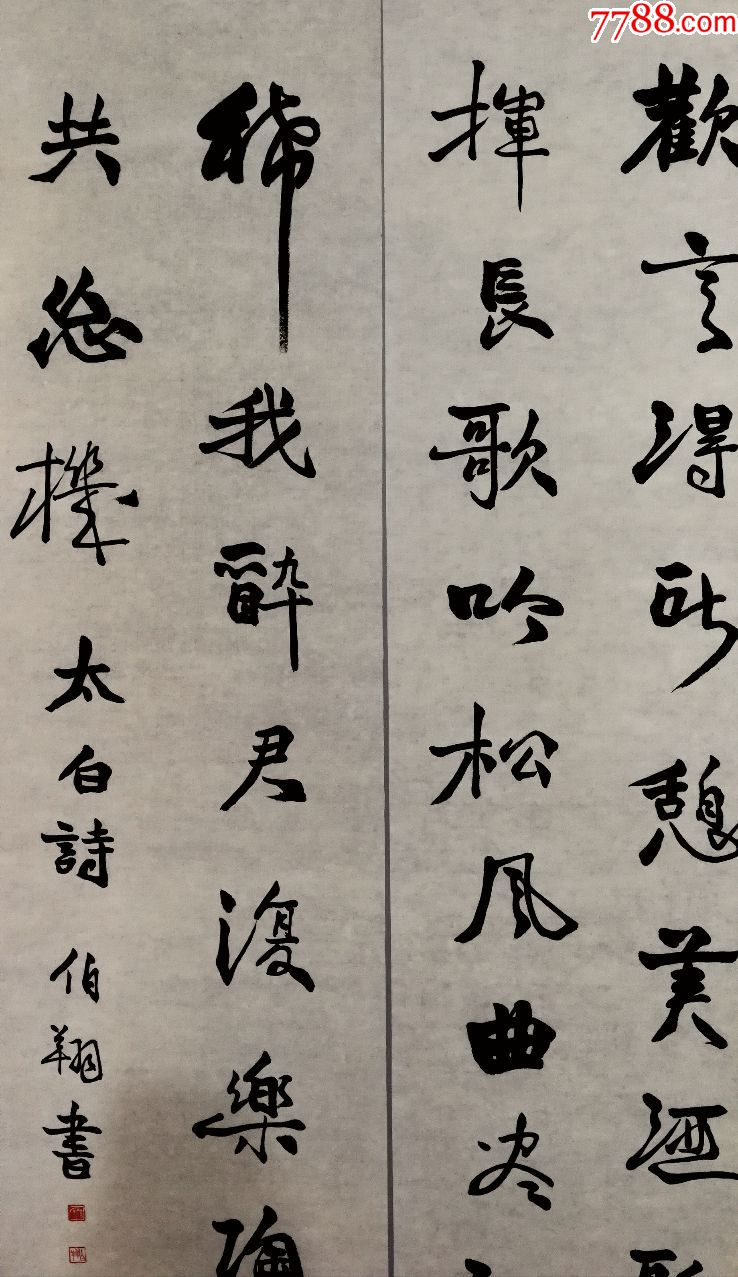 7788.com
歡言得所憩美酒
揮長歌吟松風曲尽
稀我酔君復樂陶
共忘機太白詩伯翔書